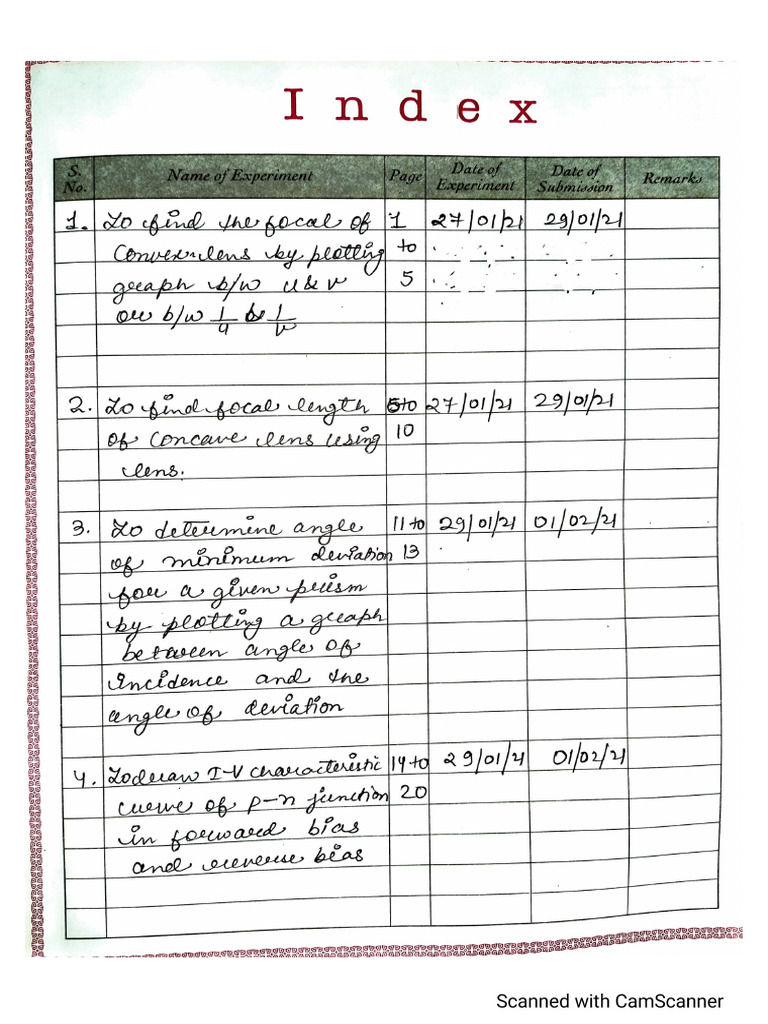 Index
S. No. Name of Experiment Page Date of Experiment Date of Submission Remarks
1. To find the focal of 1 27/01/21 29/01/21
Convex lens by plotting to
graph b/w u & v 5
or b/w 1/u & 1/v
2. To find focal length 6 to 27/01/21 29/01/21
of concave lens using 10
lens.
3. To determine angle 11 to 29/01/21 01/02/21
of minimum deviation 13
for a given prism
by plotting a graph
between angle of
incidence and the
angle of deviation
4. To draw I-V characteristic 14 to 29/01/21 01/02/21
curve of p-n junction 20
in forward bias
and reverse bias
Scanned with CamScanner